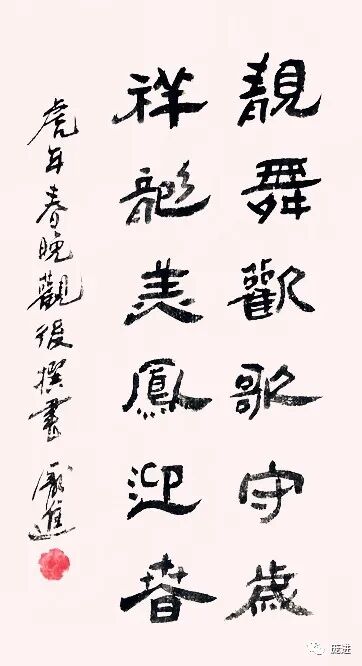 靚舞歡歌守歲
祥龍美鳳迎春
虎年春晚觀後撰書 龐進
庞进